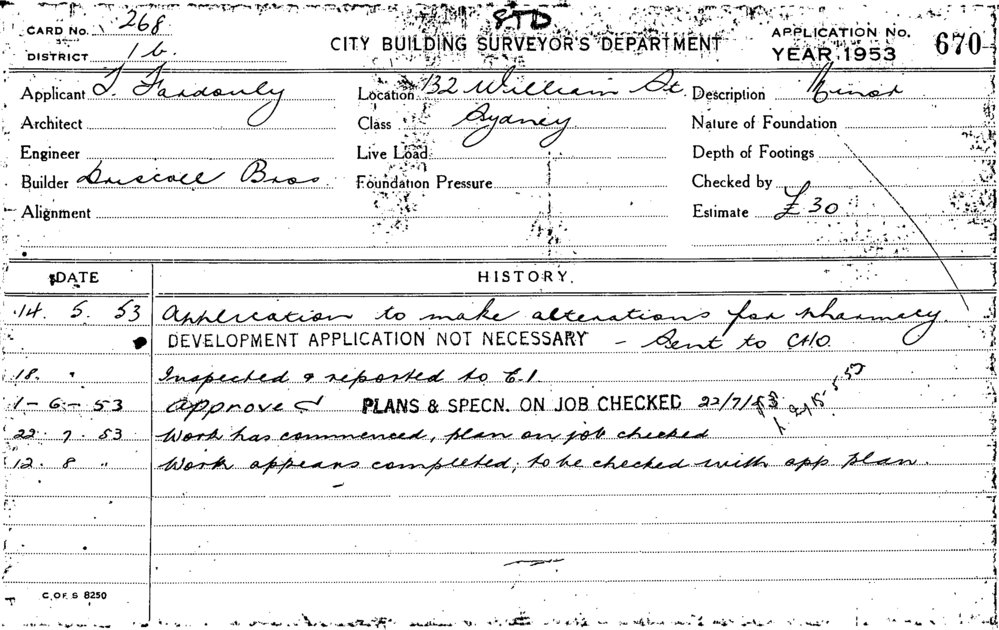 STD
CARD No. 268
CITY BUILDING SURVEYOR'S DEPARTMENT
APPLICATION No. 670
DISTRICT 1b.
YEAR 1953
Applicant T. Fardouly Location 132 William St. Description Minor
Architect Class Sydney Nature of Foundation
Engineer Live Load Depth of Footings
Builder Driscoll Bros Foundation Pressure Checked by
Alignment Estimate £30
DATE HISTORY.
14. 5. 53 Application to make alterations for pharmacy.
DEVELOPMENT APPLICATION NOT NECESSARY - Sent to CHO.
18. " Inspected & reported to E.I.
1-6-53 Approved PLANS & SPECN. ON JOB CHECKED 22/7/53
22. 7. 53 Work has commenced, plan on job checked
12. 8 " Work appears completed, to be checked with app plan.
C. OF. S 8250